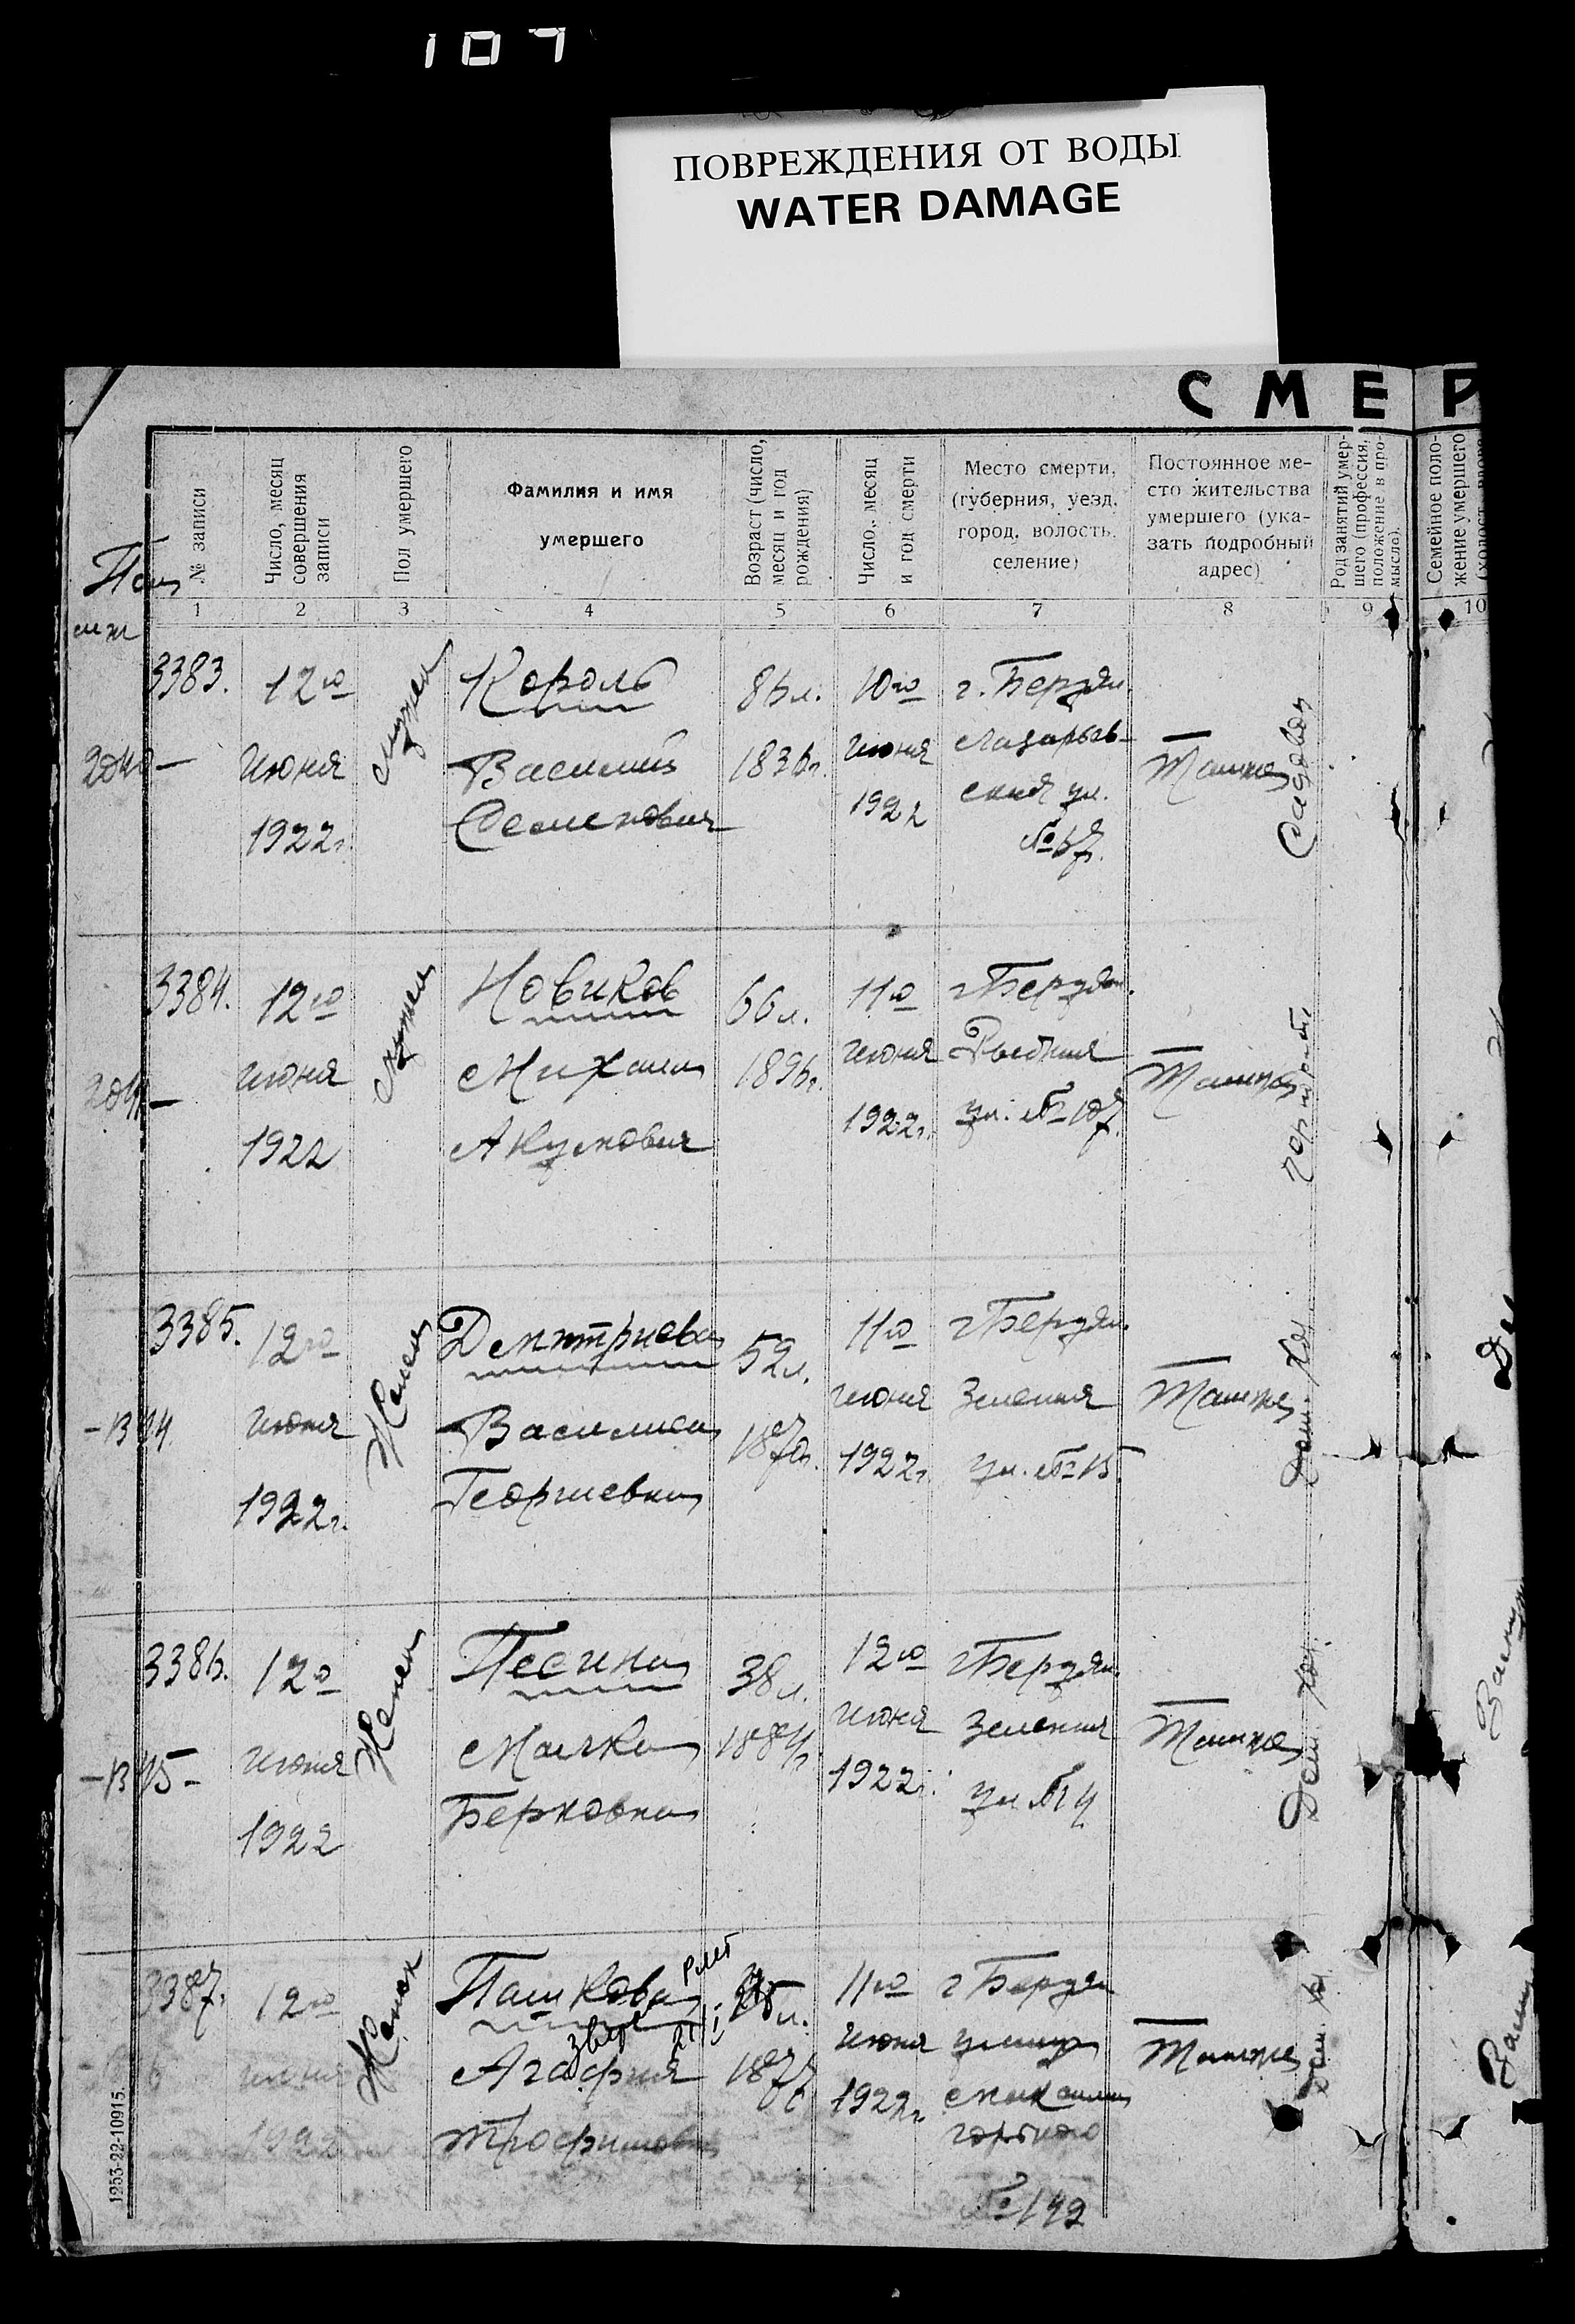 107
ПОВРЕЖДЕНИЯ ОТ ВОДЫ
WATER DAMAGE
СМЕР
№ записи
Число, месяц
совершения
записи
Пол умершего
Фамилия и имя
умершего
Возраст (число,
месяц и год
рождения)
Число, месяц
и год смерти
Место смерти,
(губерния, уезд,
город, волость,
селение)
Постоянное ме-
сто жительства
умершего (ука-
зать подробный
адрес)
Род занятий умер-
шего (профессия,
положение в про-
мысле).
Семейное поло-
жение умершего
1 2 3 4 5 6 7 8 9 10
3383.
12го
июня
1922г.
мужск
Король
Василий
Семенович
86л.
1836г.
10го
июня
1922
г. Бердян.
Лазарев-
ская ул.
№ 67.
Тамже
Садовод
3384.
12го
июня
1922
мужск
Новиков
Михаил
Акимович
66л.
11го
июня
1922г.
г Бердян.
ул. № 107.
Тамже
3385.
12го
июня
1922г.
Женск
Дмитриева
Василиса
Георгиевна
52л.
1870г.
11го
июня
1922г.
г Бердян.
Зеленая
ул. № 15.
Тамже
Дом. Хоз.
3386.
12го
июня
1922
Женск
Песина
Малка
Берковна
38л.
1884г
12го
июня
1922г.
г Бердян.
Зеленая
ул № 4
Тамже
Дом. Хоз.
3387.
12го
июня
1922
Женск
Пашкова
Агафия
Трофимовна
11го
июня
1922г
г Бердян
улица
Максима
Горького
№ 142
Тамже
Дом. Хоз
1253-22-10915.